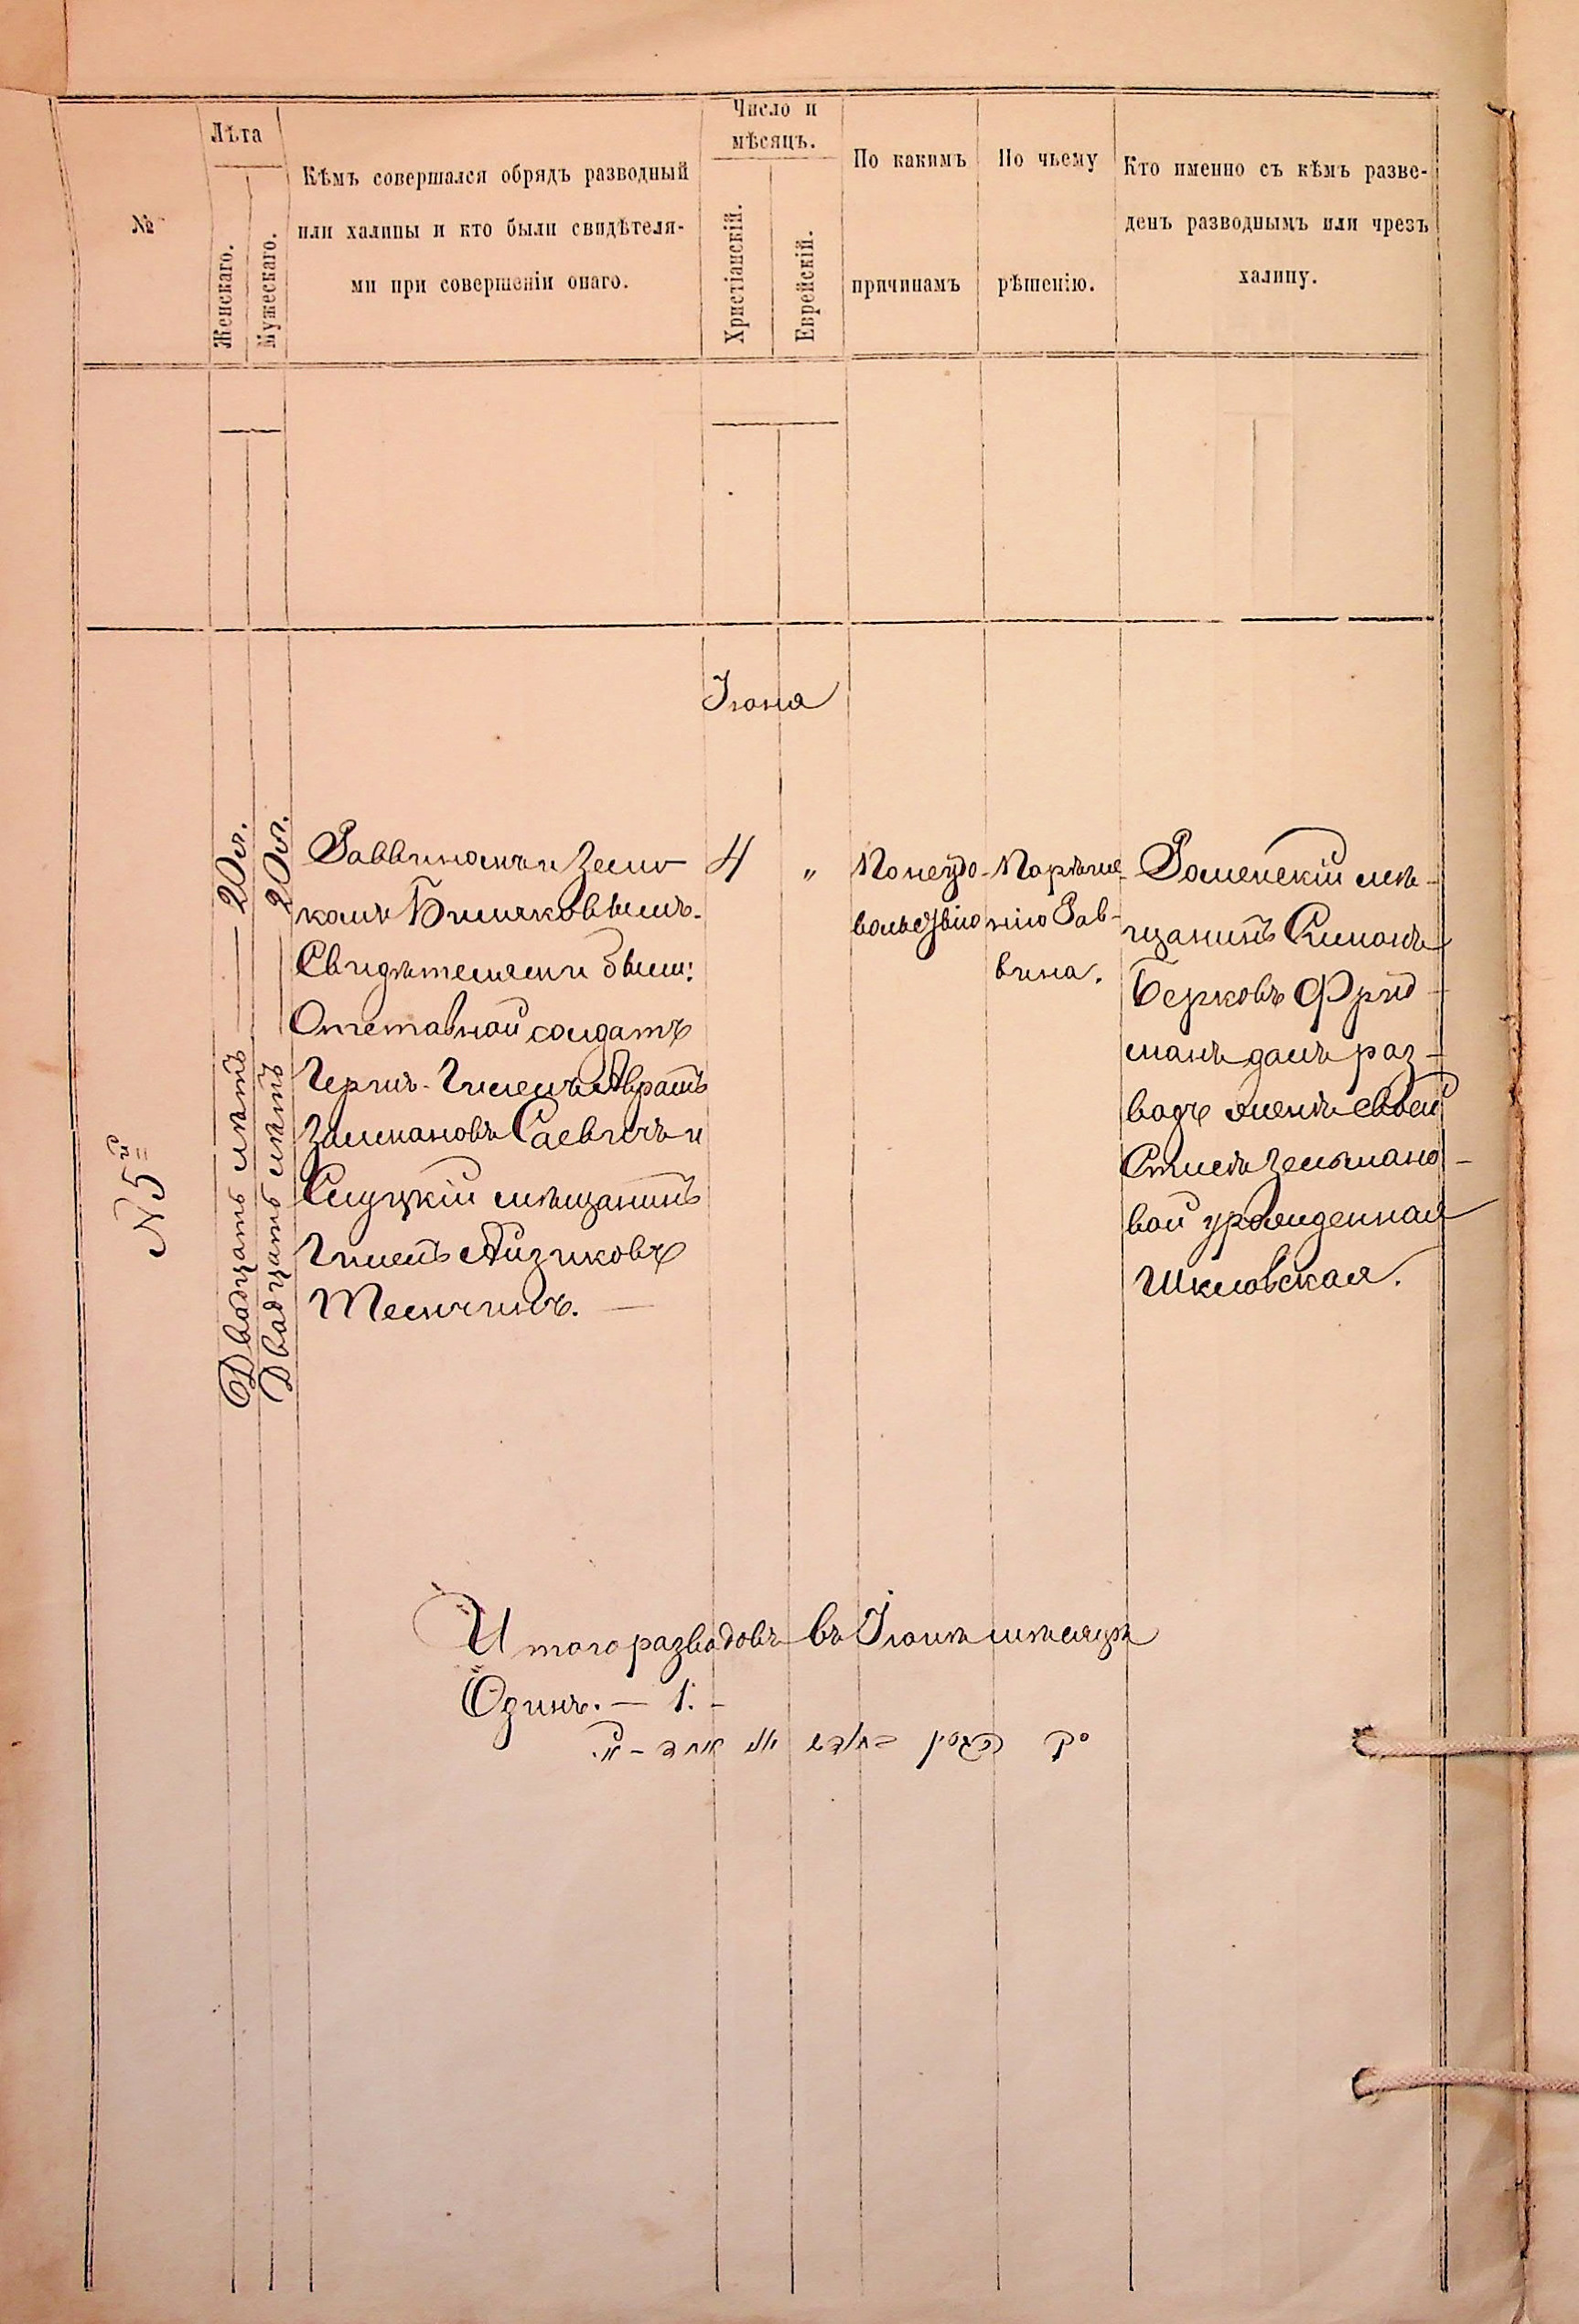 №
Лѣта
Женскаго.
Мужескаго.
Кѣмъ совершался обрядъ разводный
или халицы и кто были свидѣтеля-
ми при совершеніи онаго.
Число и
мѣсяцъ.
Христіанскій.
Еврейскій.
По какимъ
причинамъ
По чьему
рѣшенію.
Кто именно съ кѣмъ разве-
денъ разводнымъ или чрезъ
халицу.
Іюня
N 5й
Двадцать лѣтъ — 20 л.
Двадцать лѣтъ — 20 л.
Раввиномъ
Свидѣтелями были:
Отставной солдатъ
Залмановъ Саевичъ и
Слуцкій мѣщанинъ
Айзиковъ
4
"
По неудо-
вольствію
По рѣше-
нію Рав-
вина.
Роменскій мѣ-
щанинъ Симонъ
Берковъ Фрид-
манъ далъ раз-
водъ женѣ своей
Зельмано-
вой урожденная
Шкловская.
Итого разводовъ въ Іюнѣ мѣсяцѣ
Одинъ. — 1. –